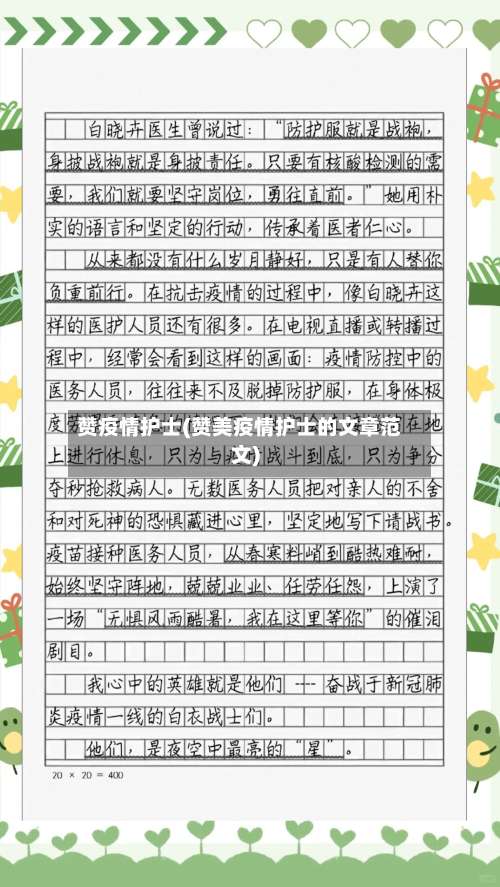 白晓卉医生曾说过：“防护服就是战袍，
身披战袍就是身披责任。只要有核酸检测的需
要，我们就要坚守岗位，勇往直前。”她用朴
实的语言和坚定的行动，传承着医者仁心。
从来都没有什么岁月静好，只是有人替你
负重前行。在抗击疫情的过程中，像白晓卉这
样的医护人员还有很多。在电视直播或转播过
程中，经常会看到这样的画面：疫情防控中的
医务人员，往往来不及脱掉防护服，在身体极
度
在地
赞疫情护士(赞美疫情护士的文章范
文)
上进行休息，只为与 战斗到底，只为争分
夺秒抢救病人。无数医务人员把对亲人的不舍
和对死神的恐惧藏进心里，坚定地写下请战书。
疫苗接种医务人员，从春寒料峭到酷热难耐，
始终坚守阵地，兢兢业业、任劳任怨，上演了
一场“无惧风雨酷暑，我在这里等你”的催泪
剧目。
我心中的英雄就是他们 ---- 奋战于新冠肺
炎疫情一线的白衣战士们。
他们，是夜空中最亮的“星”。
20 × 20 = 400